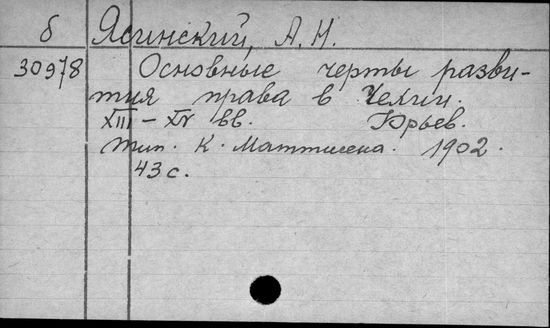 б Ясинский, А. Н.
30978 Основные черты разви-
тия права в Чехии.
XIII – XV вв. Юрьев.
тип. К. Маттисена. 1902.
43 с.